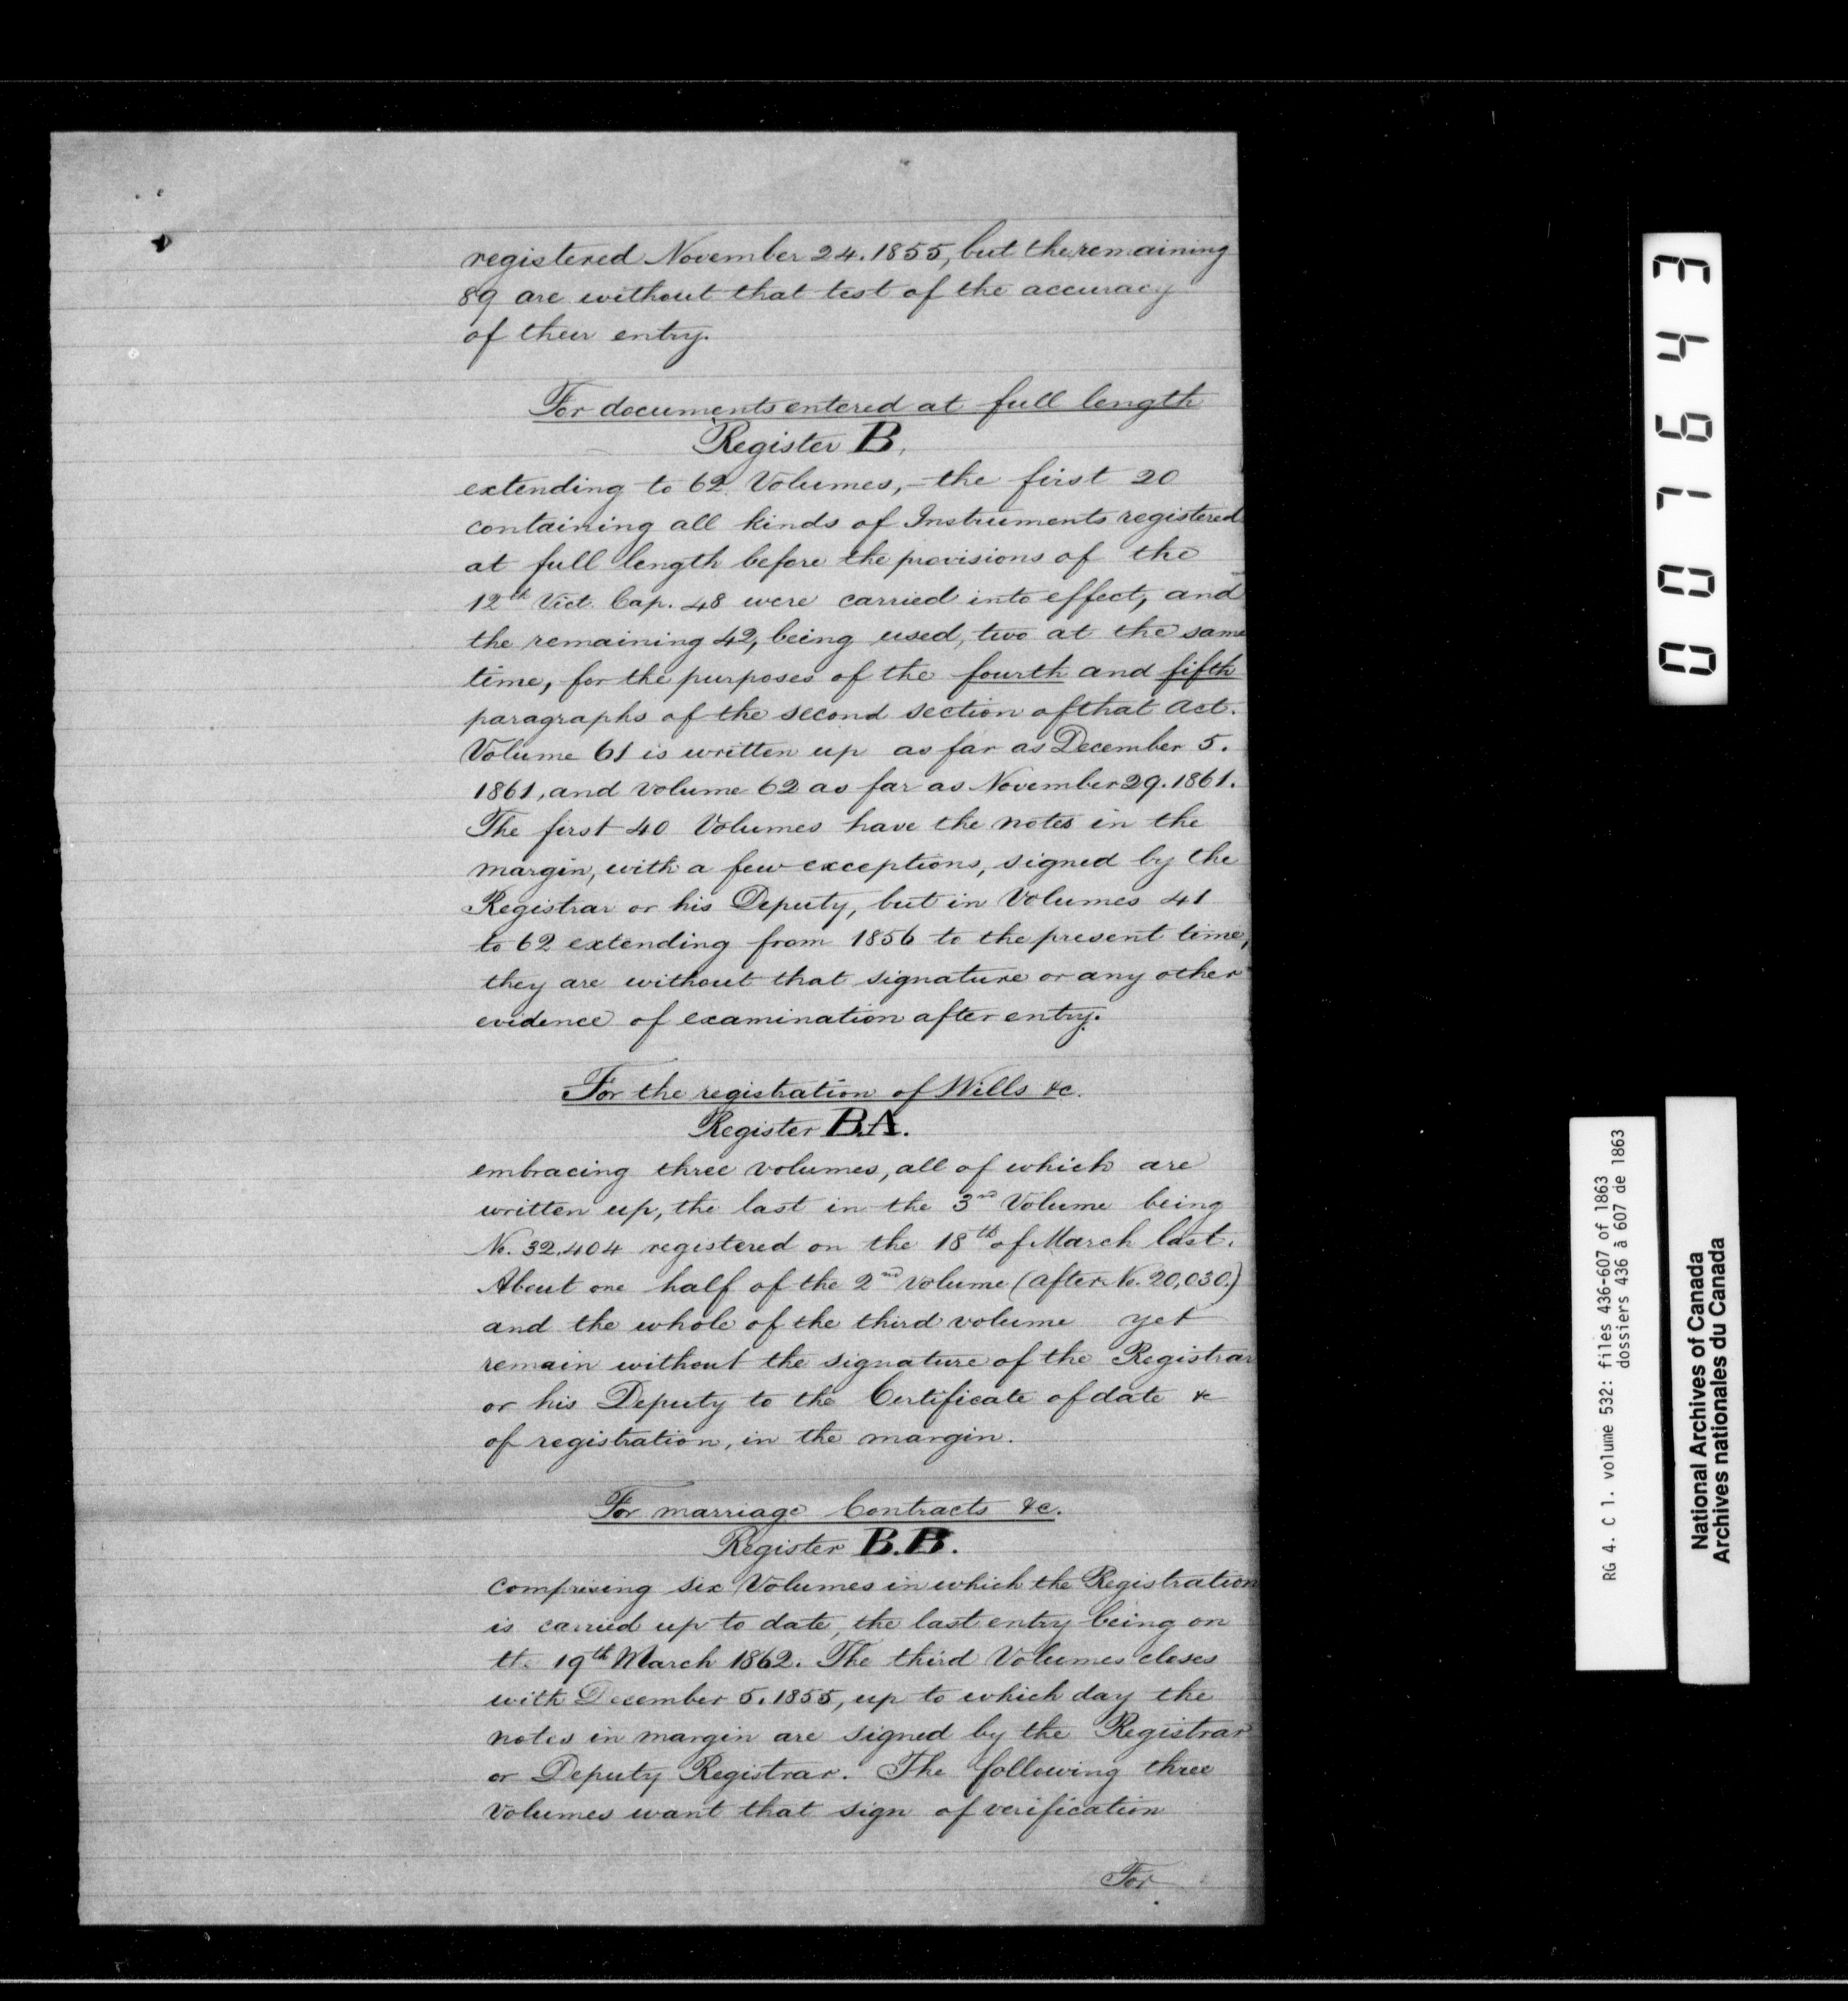 registered November 24. 1855, but the remaining
89 are without that test of the accuracy
of their entry.
For documents entered at full length
Register B.
extending to 62 Volumes, - the first 20
containing all kinds of Instruments registered
at full length before the provisions of the
12th Vict. Cap. 48 were carried into effect, and
the remaining 42, being used, two at the same
time, for the purposes of the fourth and fifth
paragraphs of the second section of that Act.
Volume 61 is written up as far as December 5.
1861, and volume 62 as far as November 29. 1861.
The first 40 Volumes have the notes in the
margin, with a few exceptions, signed by the
Registrar or his Deputy, but in Volumes 41
to 62 extending from 1856 to the present time,
they are without that signature or any other
evidence of examination after entry.
For the registration of Wills &c.
Register B.A.
embracing three volumes, all of which are
written up, the last in the 3rd Volume being
No. 32.404 registered on the 18th of March last.
About one half of the 2nd volume (after No. 20,030.)
and the whole of the third volume yet
remain without the signature of the Registrar
or his Deputy to the Certificate of date &c
of registration, in the margin.
For marriage Contracts &c.
Register B.B.
comprising six Volumes in which the Registration
is carried up to date, the last entry being on
the 19th March 1862. The third Volumes closes
with December 5. 1855, up to which day the
notes in margin are signed by the Registrar
or Deputy Registrar. The following three
Volumes want that sign of verification
For
007643
RG 4. C 1. volume 532: files 436-607 of 1863
dossiers 436 à 607 de 1863
National Archives of Canada
Archives nationales du Canada